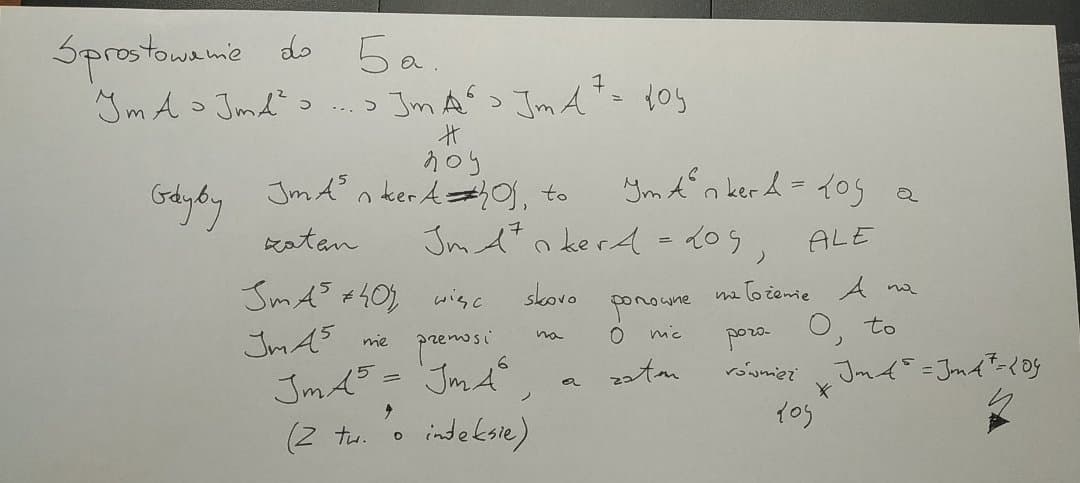 Sprostowanie do 5a.
Im A ⊃ Im A² ⊃ ... ⊃ Im A⁶ ⊃ Im A⁷ = {0}
≠
{0}
Gdyby Im A⁵ ∩ ker A = {0}, to Im A⁶ ∩ ker A = {0} a
zatem Im A⁷ ∩ ker A = {0}, ALE
Im A⁵ ≠ {0}, więc skoro ponowne nałożenie A na
Im A⁵ nie przenosi na 0 nic poza 0, to
Im A⁵ = Im A⁶, a zatem również Im A⁵ = Im A⁷ = {0}
(Z tw. o indeksie)
≠
{0}